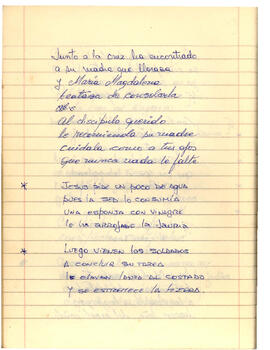 Junto a la cruz ha encontrado
a su madre que lloraba
y María Magdalena
trataba de consolarla
Al discípulo querido
le recomienda su madre
cuidala como a tus ojos
que nunca nada le falte.
* Jesus pide un poco de agua
pues la sed lo consumia
una esponja con vinagre
le ha arrojado la jauria
* Luego vienen los soldados
a concluir su tarea
le clavan lanza al costado
y se estremece la tierra.